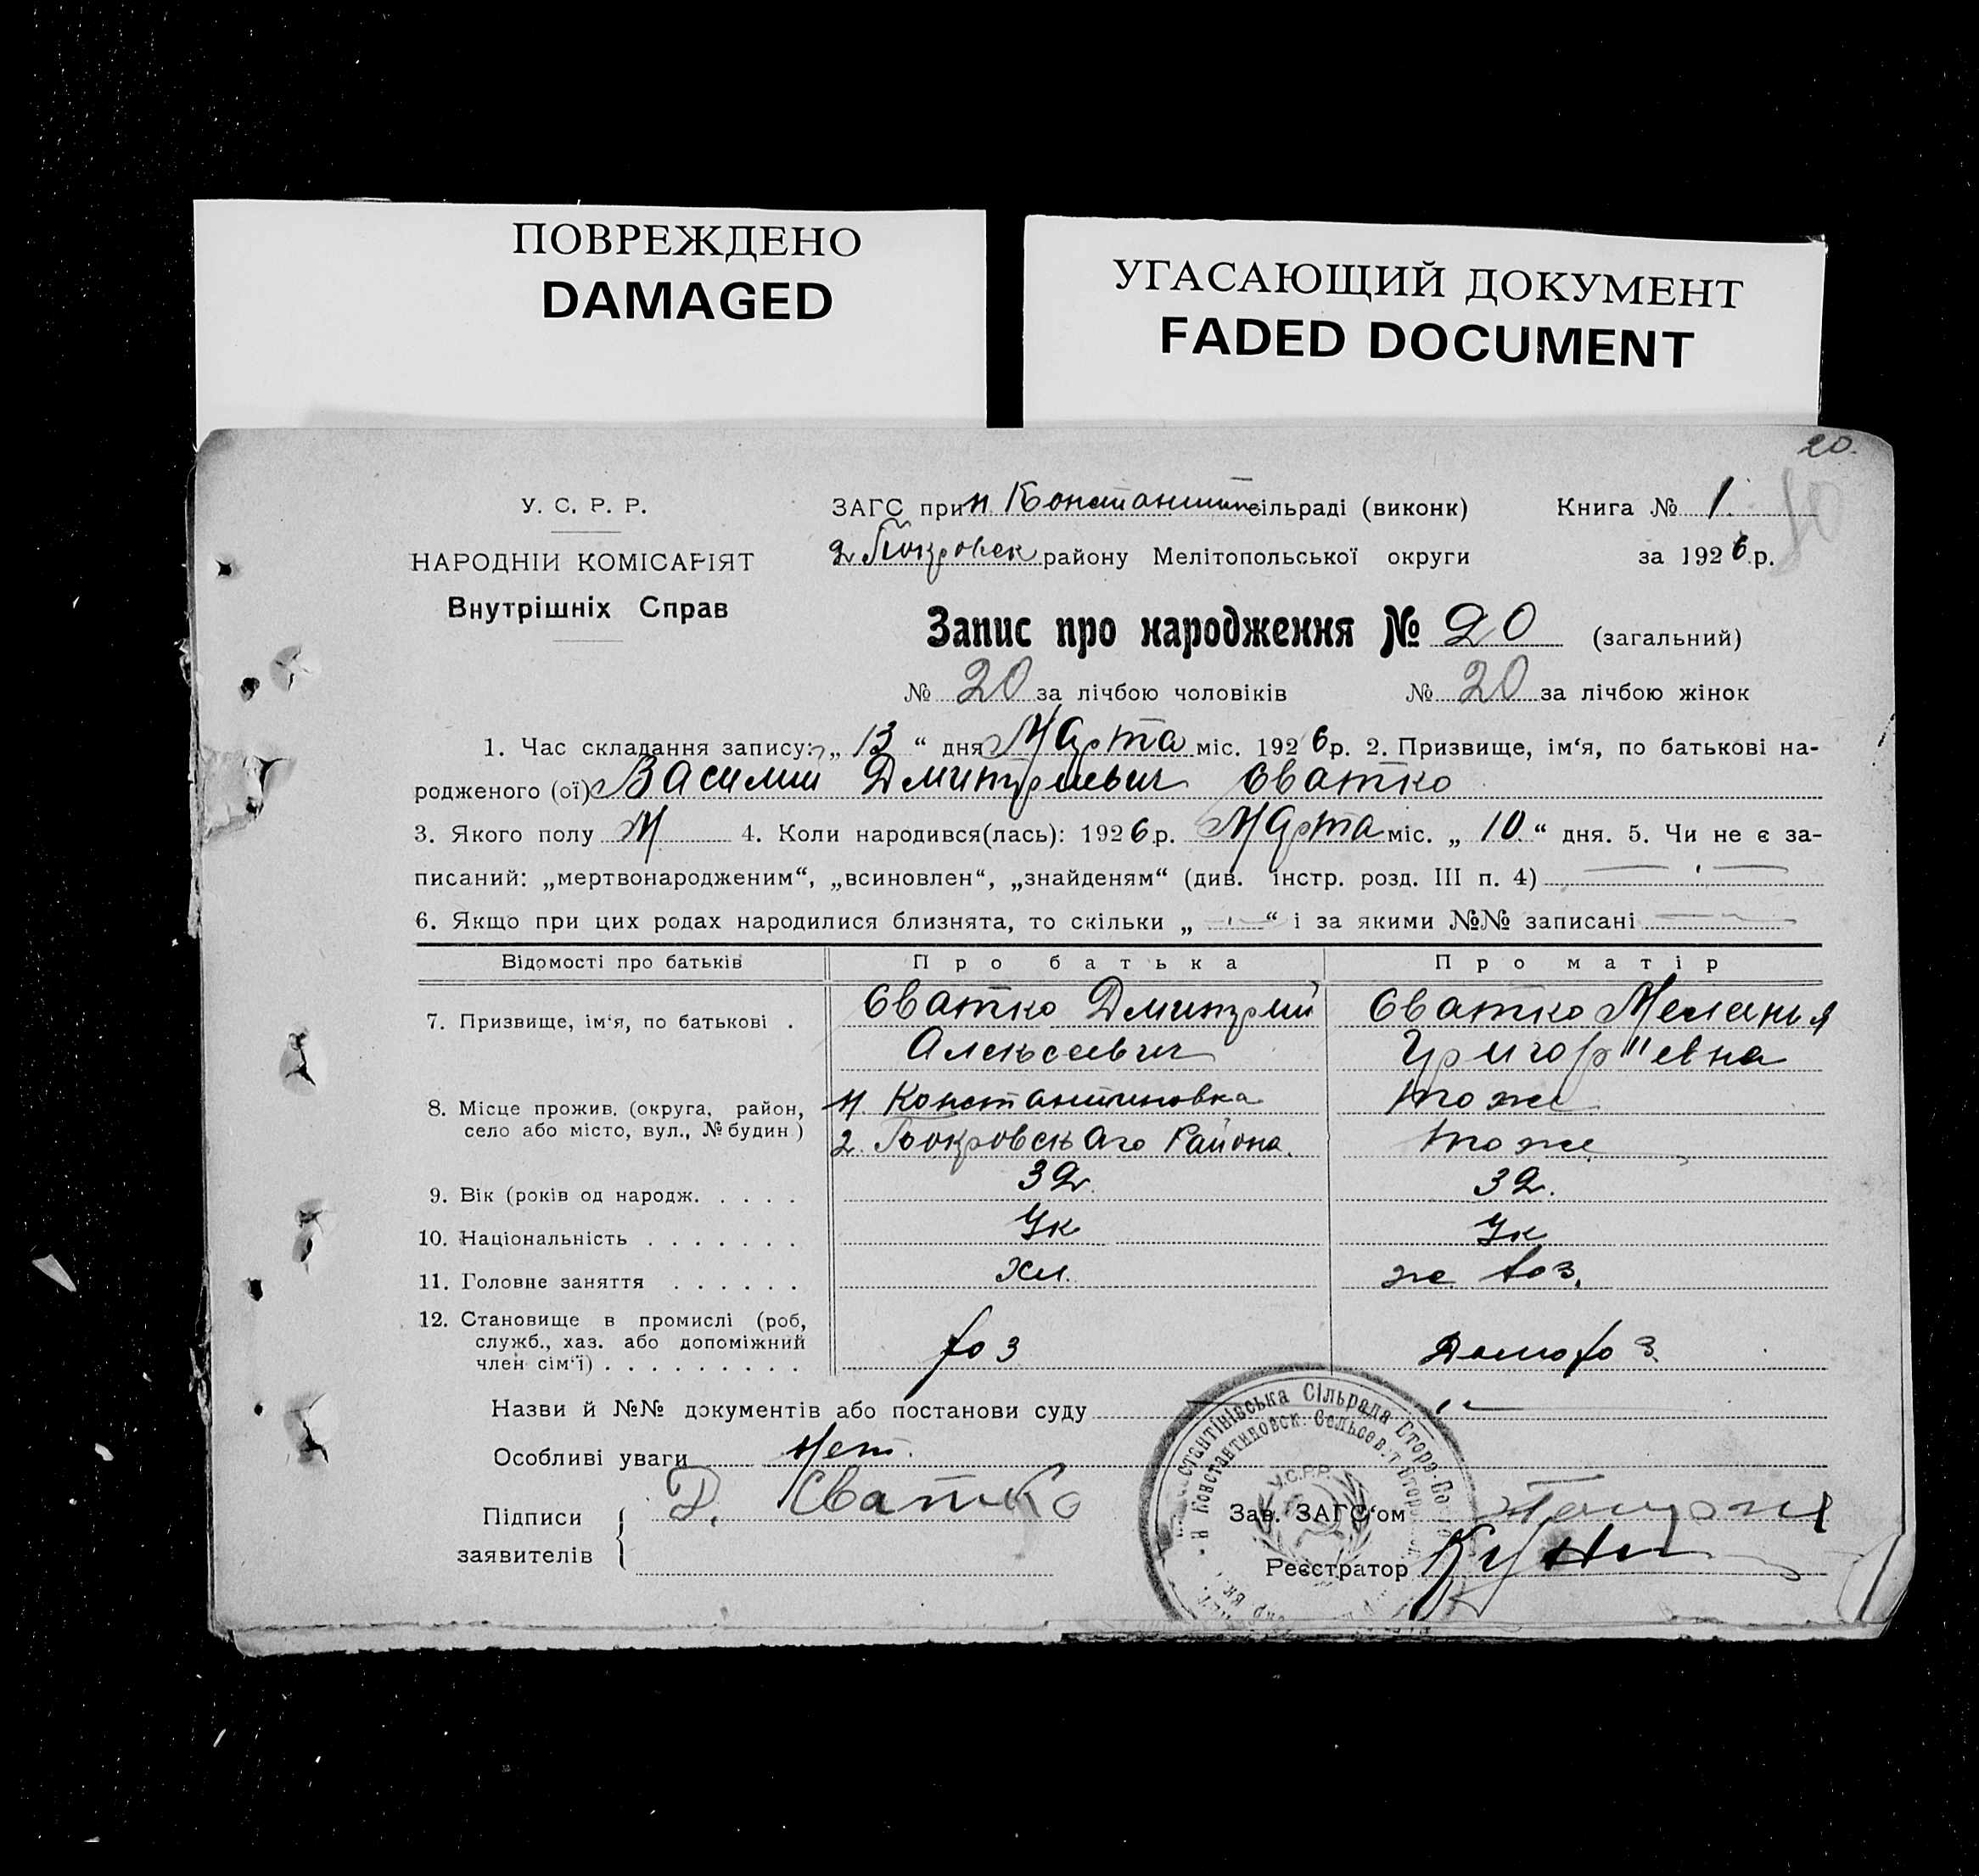 ПОВРЕЖДЕНО
DAMAGED
УГАСАЮЩИЙ ДОКУМЕНТ
FADED DOCUMENT
20.
У. С. Р. Р.
НАРОДНІЙ КОМІСАРІЯТ
Внутрішніх Справ
ЗАГС при Н Константин сільраді (виконк) Книга № 1.
2 Покровск району Мелітопольської округи за 1926 р.
Запис про народження № 20 (загальний)
№ 20 за лічбою чоловіків № 20 за лічбою жінок
1. Час складання запису: „ 13 “ дня Марта міс. 1926 р. 2. Призвище, ім‘я, по батькові на-
родженого (ої) Василий Дмитриевич Сватко
3. Якого полу М 4. Коли народився(лась): 1926 р. Марта міс. „ 10. “ дня. 5. Чи не є за-
писаний: „мертвонародженим“, „всиновлен“, „знайденям“ (див. інстр. розд. III п. 4)
6. Якщо при цих родах народилися близнята, то скільки „ “ і за якими №№ записані
Відомості про батьків Про батька Про матір
7. Призвище, ім‘я, по батькові . Сватко Дмитрий Сватко Меланья
Алексеевич Григорьевна
8. Місце прожив. (округа, район, Н. Константиновка тоже
село або місто, вул., № будин) 2. Покровскаго Района. тоже
9. Вік (років од народж. . . . . 32 32.
10. Національність . . . . . . . Ук Ук
11. Головне заняття . . . . . . Хл.
12. Становище в промислі (роб,
служб., хаз. або допоміжний хоз Домохоз
член сім‘ї) . . . . . . . . .
Назви й №№ документів або постанови суду
Особливі уваги Нет.
Підписи Д. Сватко
заявителів
Зав. ЗАГС‘ом
Реєстратор
Константінівська Сільрада Второ-По
Н Константиновск. Сельсовет Втор
У.С.Р.Р.